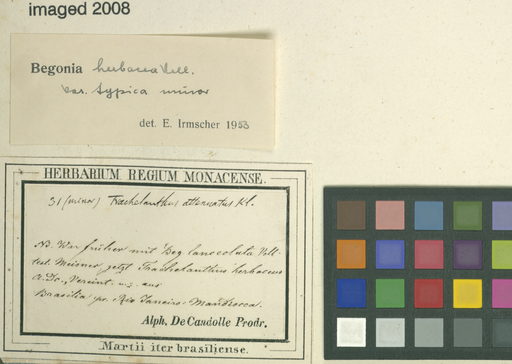 imaged 2008
Begonia herbacea Vell.
var. typica minor
det. E. Irmscher 1953
HERBARIUM REGIUM MONACENSE.
31 (minor) Trachelanthus attenuatus Kl.
NB. War früher mit Beg lanceolata Vell.
test. Meisner, jetzt Trachelanthus herbaceus
Brasilia pr. Rio Janeiro - Mandiocca.
Alph. De Candolle Prodr.
Martii iter brasiliense.